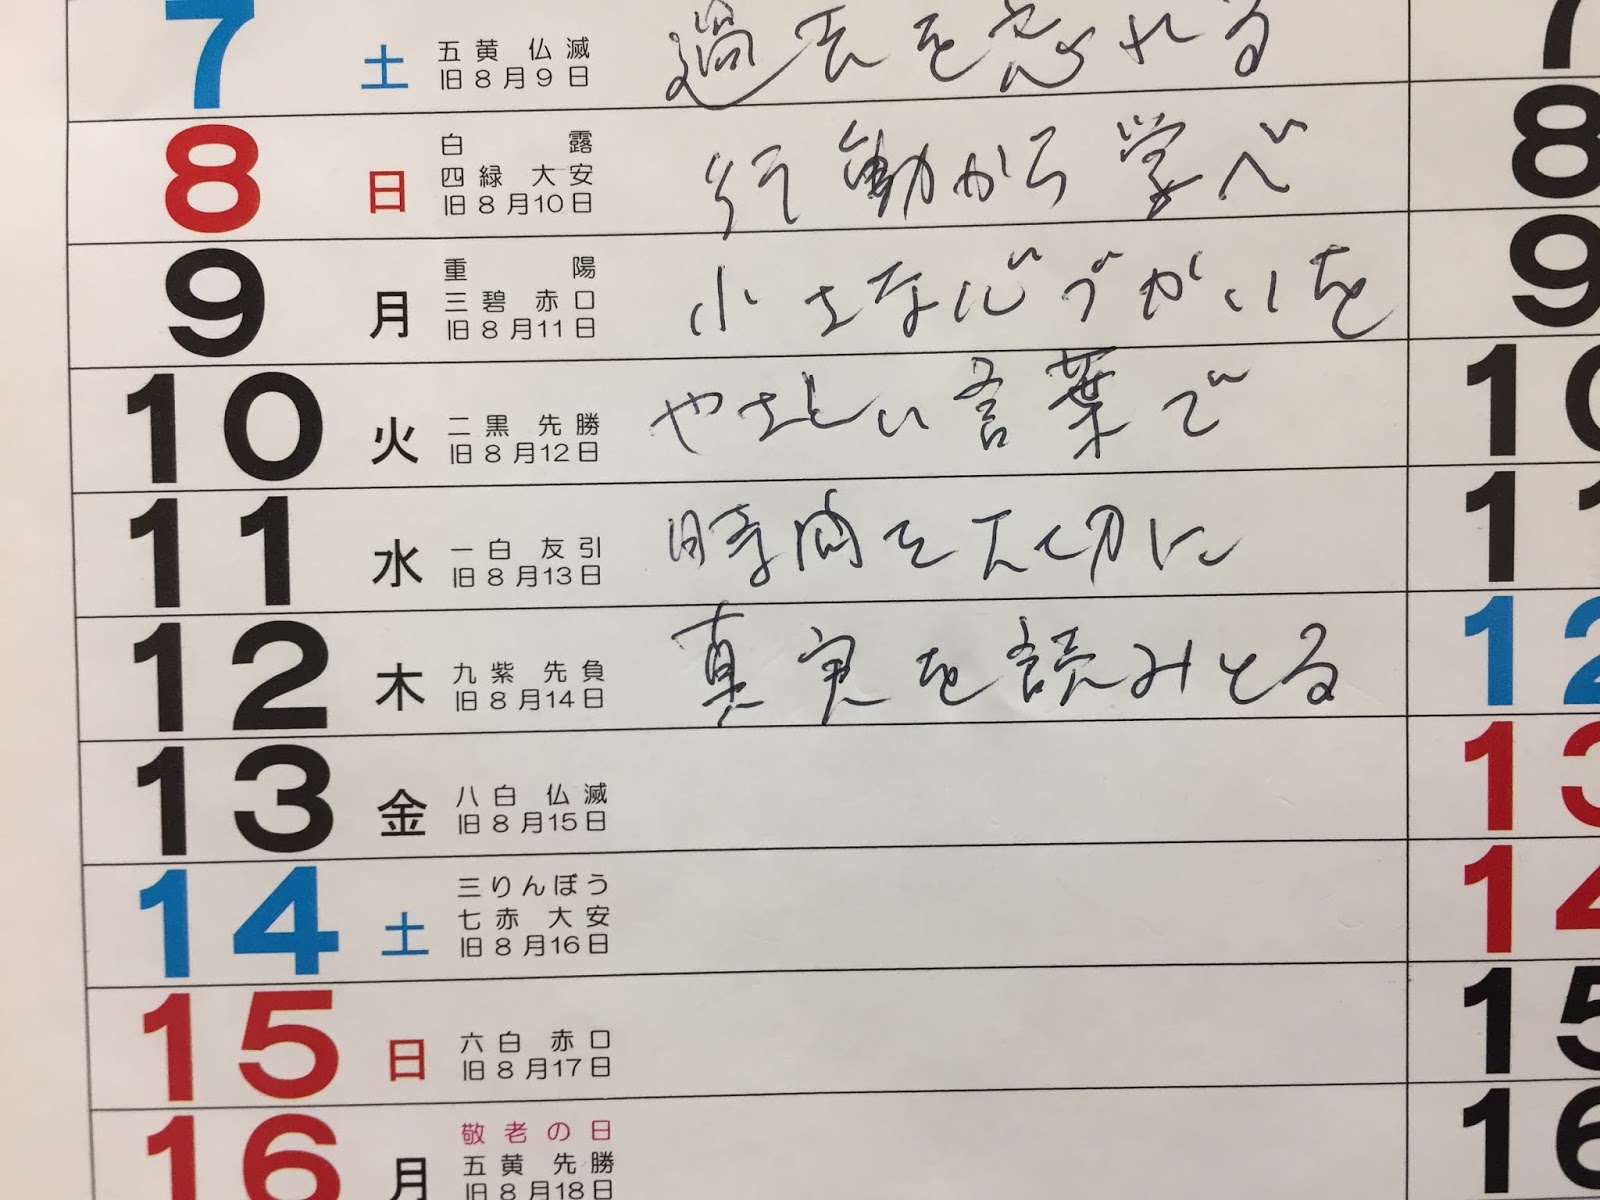 7 土 五黄 仏滅 過去を忘れる 7
旧8月9日
8 日 白露 行動から学べ 8
四緑 大安
旧8月10日
9 月 重陽 小さな心づかいを 9
三碧 赤口
旧8月11日
10 火 二黒 先勝 やさしい言葉で 10
旧8月12日
11 水 一白 友引 時間を大切に 11
旧8月13日
12 木 九紫 先負 真実を読みとる 12
旧8月14日
13 金 八白 仏滅 13
旧8月15日
14 土 三りんぼう 14
七赤 大安
旧8月16日
15 日 六白 赤口 15
旧8月17日
16 月 敬老の日 16
五黄 先勝
旧8月18日